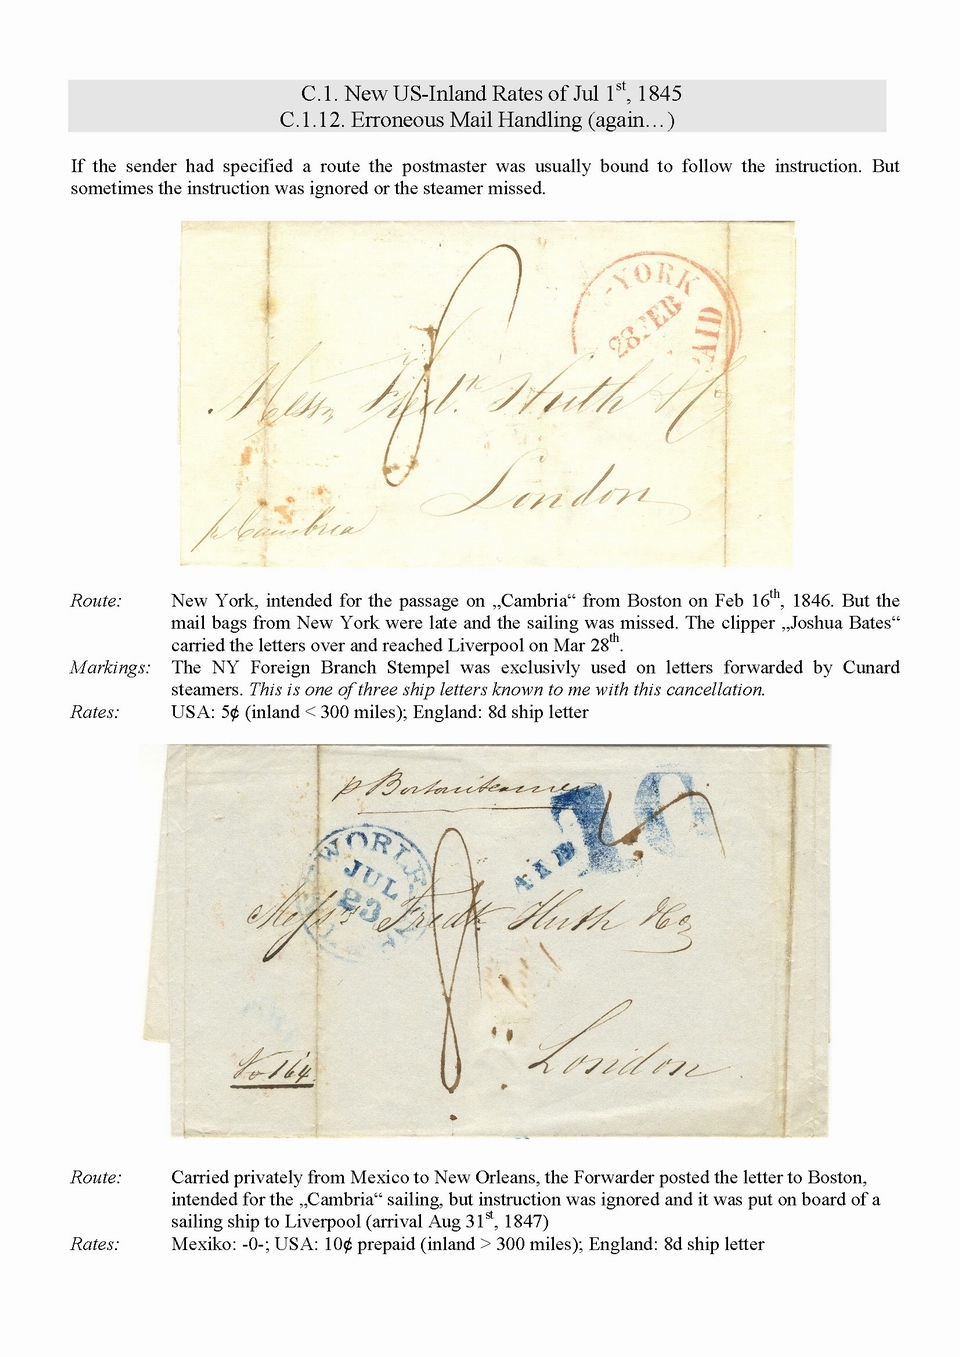 C.1. New US-Inland Rates of Jul 1st, 1845
C.1.12. Erroneous Mail Handling (again…)
If the sender had specified a route the postmaster was usually bound to follow the instruction. But
sometimes the instruction was ignored or the steamer missed.
-YORK
28 FEB
AID
8
Messrs Fredk. Huth & Co
London
p Cambria
Route: New York, intended for the passage on „Cambria“ from Boston on Feb 16th, 1846. But the
mail bags from New York were late and the sailing was missed. The clipper „Joshua Bates“
carried the letters over and reached Liverpool on Mar 28th.
Markings: The NY Foreign Branch Stempel was exclusivly used on letters forwarded by Cunard
steamers. This is one of three ship letters known to me with this cancellation.
Rates: USA: 5¢ (inland < 300 miles); England: 8d ship letter
p Boston steamer
10
JUL
23
8
Messrs Fredk Huth & Co
London
No 164
Route: Carried privately from Mexico to New Orleans, the Forwarder posted the letter to Boston,
intended for the „Cambria“ sailing, but instruction was ignored and it was put on board of a
sailing ship to Liverpool (arrival Aug 31st, 1847)
Rates: Mexiko: -0-; USA: 10¢ prepaid (inland > 300 miles); England: 8d ship letter